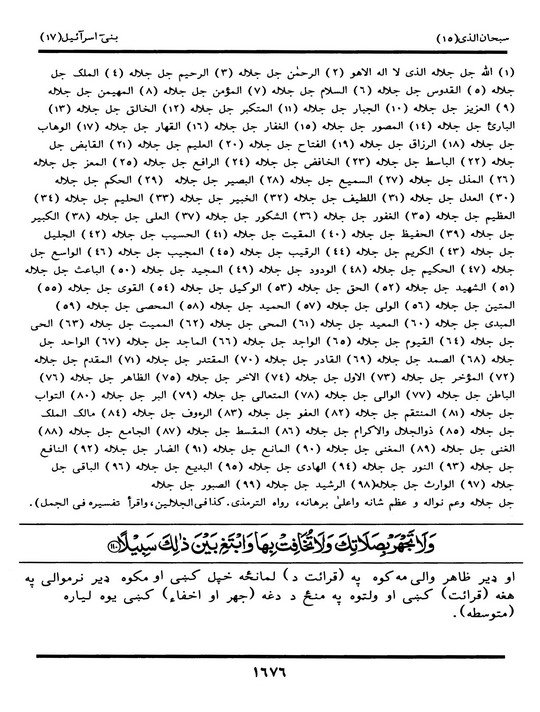 سبحان الذی(١٥) بنیٓ اسرآئیل(١٧)
(١) الله جل جلاله الذی لا اله الاهو (٢) الرحمٰن جل جلاله (٣) الرحیم جل جلاله (٤) الملک جل
جلاله (٥) القدوس جل جلاله (٦) السلام جل جلاله (٧) المؤمن جل جلاله (٨) المهیمن جل جلاله
(٩) العزیز جل جلاله (١٠) الجبار جل جلاله (١١) المتکبر جل جلاله (١٢) الخالق جل جلاله (١٣)
البارئ جل جلاله (١٤) المصور جل جلاله (١٥) الغفار جل جلاله (١٦) القهار جل جلاله (١٧) الوهاب
جل جلاله (١٨) الرزاق جل جلاله (١٩) الفتاح جل جلاله (٢٠) العلیم جل جلاله (٢١) القابض جل
جلاله (٢٢) الباسط جل جلاله (٢٣) الخافض جل جلاله (٢٤) الرافع جل جلاله (٢٥) المعز جل جلاله
(٢٦) المذل جل جلاله (٢٧) السمیع جل جلاله (٢٨) البصیر جل جلاله (٢٩) الحکم جل جلاله
(٣٠) العدل جل جلاله (٣١) اللطیف جل جلاله (٣٢) الخبیر جل جلاله (٣٣) الحلیم جل جلاله (٣٤)
العظیم جل جلاله (٣٥) الغفور جل جلاله (٣٦) الشکور جل جلاله (٣٧) العلی جل جلاله (٣٨) الکبیر
جل جلاله (٣٩) الحفیظ جل جلاله (٤٠) المقیت جل جلاله (٤١) الحسیب جل جلاله (٤٢) الجلیل
جل جلاله (٤٣) الکریم جل جلاله (٤٤) الرقیب جل جلاله (٤٥) المجیب جل جلاله (٤٦) الواسع جل
جلاله (٤٧) الحکیم جل جلاله (٤٨) الودود جل جلاله (٤٩) المجید جل جلاله (٥٠) الباعث جل جلاله
(٥١) الشهید جل جلاله (٥٢) الحق جل جلاله (٥٣) الوکیل جل جلاله (٥٤) القوی جل جلاله (٥٥)
المتین جل جلاله (٥٦) الولی جل جلاله (٥٧) الحمید جل جلاله (٥٨) المحصی جل جلاله (٥٩)
المبدی جل جلاله (٦٠) المعید جل جلاله (٦١) المحی جل جلاله (٦٢) الممیت جل جلاله (٦٣) الحی
جل جلاله (٦٤) القیوم جل جلاله (٦٥) الواجد جل جلاله (٦٦) الماجد جل جلاله (٦٧) الواحد جل
جلاله (٦٨) الصمد جل جلاله (٦٩) القادر جل جلاله (٧٠) المقتدر جل جلاله (٧١) المقدم جل جلاله
(٧٢) المؤخر جل جلاله (٧٣) الاول جل جلاله (٧٤) الاخر جل جلاله (٧٥) الظاهر جل جلاله (٧٦)
الباطن جل جلاله (٧٧) الوالی جل جلاله (٧٨) المتعالی جل جلاله (٧٩) البر جل جلاله (٨٠) التواب
جل جلاله (٨١) المنتقم جل جلاله (٨٢) العفو جل جلاله (٨٣) الرءوف جل جلاله (٨٤) مالک الملک
جل جلاله (٨٥) ذوالجلال والاکرام جل جلاله (٨٦) المقسط جل جلاله (٨٧) الجامع جل جلاله (٨٨)
الغنی جل جلاله (٨٩) المغنی جل جلاله (٩٠) المانع جل جلاله (٩١) الضار جل جلاله (٩٢) النافع
جل جلاله (٩٣) النور جل جلاله (٩٤) الهادی جل جلاله (٩٥) البدیع جل جلاله (٩٦) الباقی جل
جلاله (٩٧) الوارث جل جلاله(٩٨) الرشید جل جلاله (٩٩) الصبور جل جلاله
جل جلاله وعم نواله و عظم شانه واعلیٰ برهانه، رواه الترمذی. کذافی الجلالین، واقرأ تفسیره فی الجمل).
وَلَا تَجْهَرْ بِصَلَاتِكَ وَلَا تُخَافِتْ بِهَا وَابْتَغِ بَيْنَ ذٰلِكَ سَبِيْلًا ﴿١١٠﴾
او ډیر ظاهر والی مه کوه په (قرائت د) لمانځه خپل کښی او مکوه ډیر نرموالی په
هغه (قرائت) کښی او ولټوه په منځ د دغه (جهر او اخفاء) کښی یوه لیاره
(متوسطه).
١٦٧٦